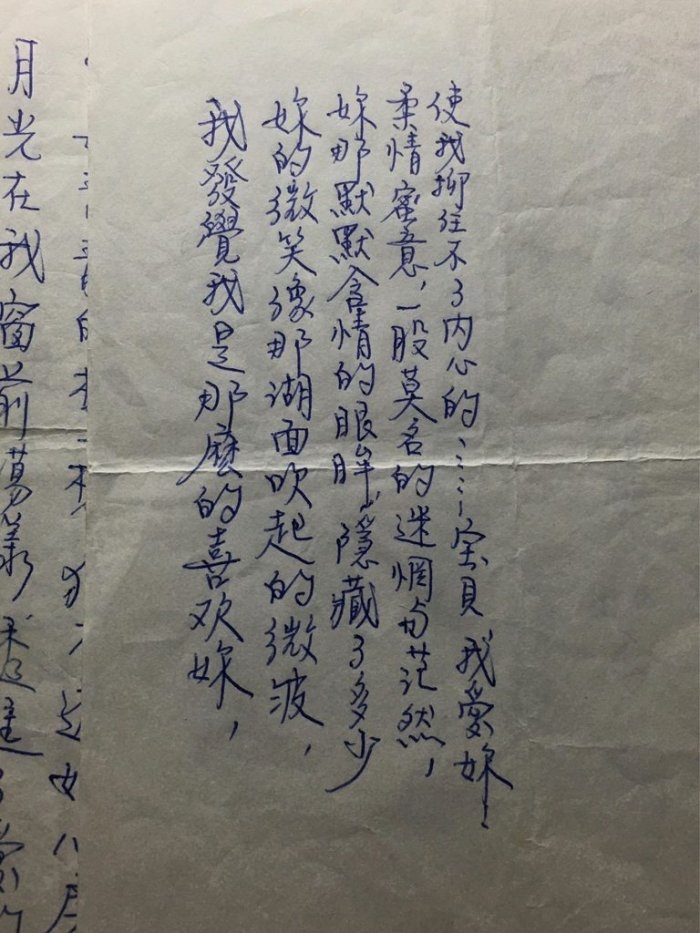 月光在我窗前蕩漾
我發覺我是那麼的喜欢妳,
妳的微笑像那湖面吹起的微波,
妳那默默含情的眼眸,隱藏了多少
柔情蜜意,一股莫名的迷惘与茫然,
使我抑住不了內心的……宝貝 我愛妳…